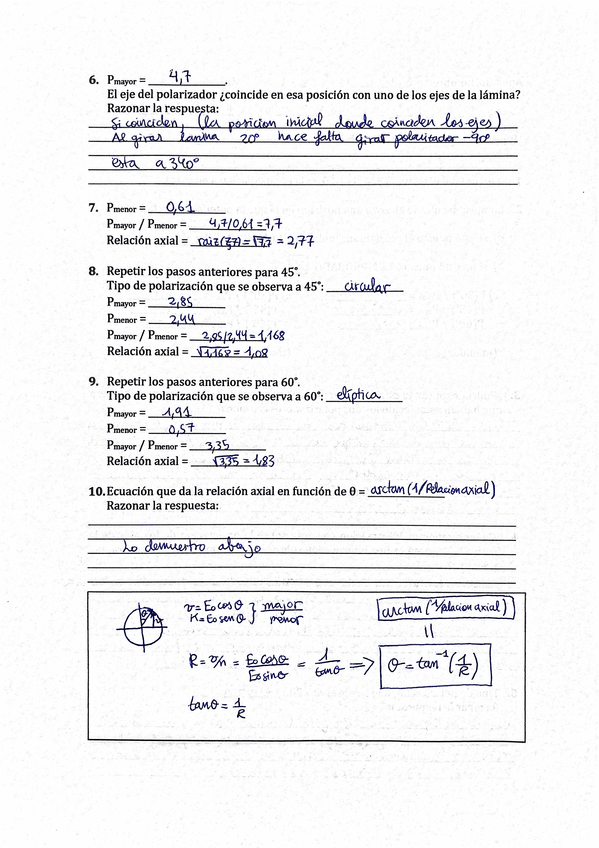 6. Pmayor = 4,7.
El eje del polarizador ¿coincide en esa posición con uno de los ejes de la lámina?
Razonar la respuesta:
Si coinciden, (la posicion inicial donde coinciden los ejes)
Al girar lamina 20º hace falta girar polaritador -90º
esta a 340º
7. Pmenor = 0,61
Pmayor / Pmenor = 4,7/0,61 = 7,7
Relación axial = raiz(7,7) = √7,7 = 2,77
8. Repetir los pasos anteriores para 45°.
Tipo de polarización que se observa a 45°: circular
Pmayor = 2,85
Pmenor = 2,44
Pmayor / Pmenor = 2,85/2,44 = 1,168
Relación axial = √1,168 = 1,08
9. Repetir los pasos anteriores para 60°.
Tipo de polarización que se observa a 60°: elíptica
Pmayor = 1,91
Pmenor = 0,57
Pmayor / Pmenor = 3,35
Relación axial = √3,35 = 1,83
10. Ecuación que da la relación axial en función de θ = arctan(1/Relacion axial)
Razonar la respuesta:
Lo demuestro abajo
v = Eo cosθ } major
K = Eo senθ } menor
arctan(1/Relacion axial)
=
R = v/n = Eo cosθ / Eo sinθ = 1/tanθ => θ = tan⁻¹(1/R)
tanθ = 1/R